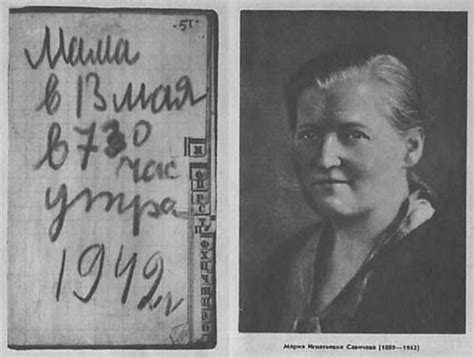 Мама
в 13 мая
в 730
час
утра
1942 г
Мария Игнатьевна Савичева (1889—1942)